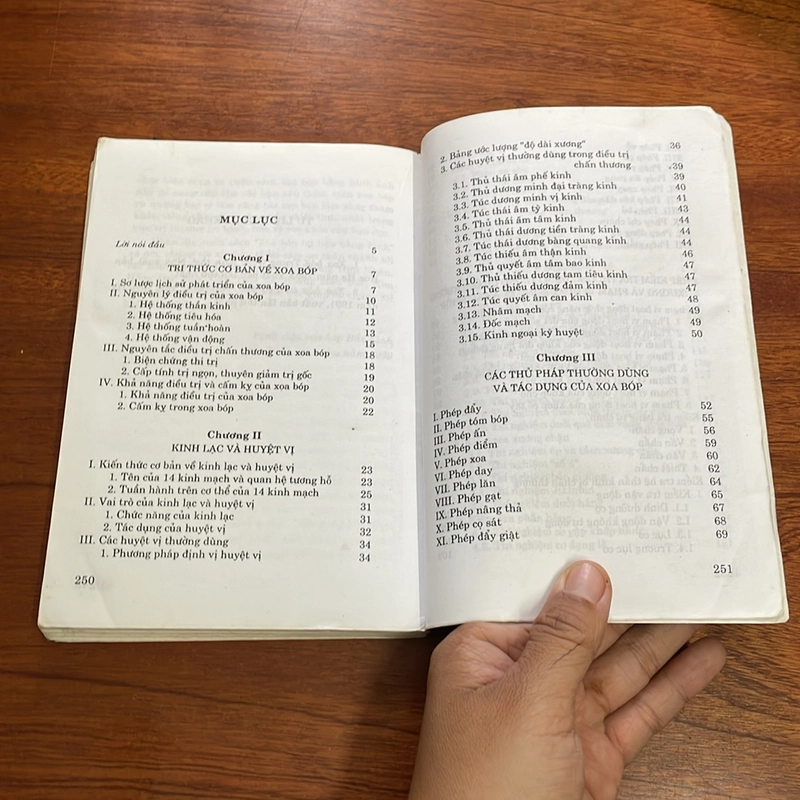 MỤC LỤC
Lời nói đầu 5
Chương I
TRI THỨC CƠ BẢN VỀ XOA BÓP 7
I. Sơ lược lịch sử phát triển của xoa bóp 7
II. Nguyên lý điều trị của xoa bóp 10
1. Hệ thống thần kinh 11
2. Hệ thống tiêu hóa 12
3. Hệ thống tuần hoàn 13
4. Hệ thống vận động 15
III. Nguyên tắc điều trị chấn thương của xoa bóp 18
1. Biện chứng thi trị 18
2. Cấp tính trị ngọn, thuyên giảm trị gốc 19
IV. Khả năng điều trị và cấm kỵ của xoa bóp 20
1. Khả năng điều trị của xoa bóp 20
2. Cấm kỵ trong xoa bóp 22
Chương II
KINH LẠC VÀ HUYỆT VỊ
I. Kiến thức cơ bản về kinh lạc và huyệt vị 23
1. Tên của 14 kinh mạch và quan hệ tương hỗ 23
2. Tuần hành trên cơ thể của 14 kinh mạch 25
II. Vai trò của kinh lạc và huyệt vị 31
1. Chức năng của kinh lạc 31
2. Tác dụng của huyệt vị 32
III. Các huyệt vị thường dùng 34
1. Phương pháp định vị huyệt vị 34
250
2. Bảng ước lượng "độ dài xương" 36
3. Các huyệt vị thường dùng trong điều trị
chấn thương 39
3.1. Thủ thái âm phế kinh 39
3.2. Thủ dương minh đại tràng kinh 40
3.3. Túc dương minh vị kinh 41
3.4. Túc thái âm tỳ kinh 43
3.5. Thủ thái âm tâm kinh 44
3.6. Thủ thái dương tiền tràng kinh 44
3.7. Túc thái dương bàng quang kinh 44
3.8. Túc thiếu âm thận kinh 46
3.9. Thủ quyết âm tâm bao kinh 47
3.10. Thủ thiếu dương tam tiêu kinh 47
3.11. Túc thiếu dương đảm kinh 47
3.12. Túc quyết âm can kinh 48
3.13. Nhâm mạch 49
3.14. Đốc mạch 49
3.15. Kinh ngoại kỳ huyệt 50
Chương III
CÁC THỦ PHÁP THƯỜNG DÙNG
VÀ TÁC DỤNG CỦA XOA BÓP
I. Phép đẩy 52
II. Phép tóm bóp 55
III. Phép ấn 56
IV. Phép điểm 59
V. Phép xoa 60
VI. Phép day 62
VII. Phép lăn 64
VIII. Phép gạt 65
IX. Phép nâng thả 67
X. Phép cọ sát 68
XI. Phép đẩy giật 69
251